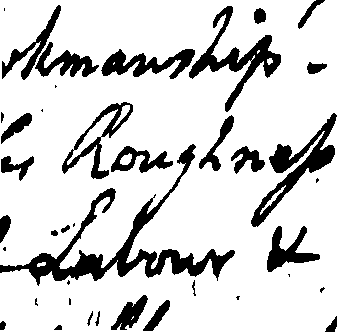 rkmanship -
Roughness
Labour &